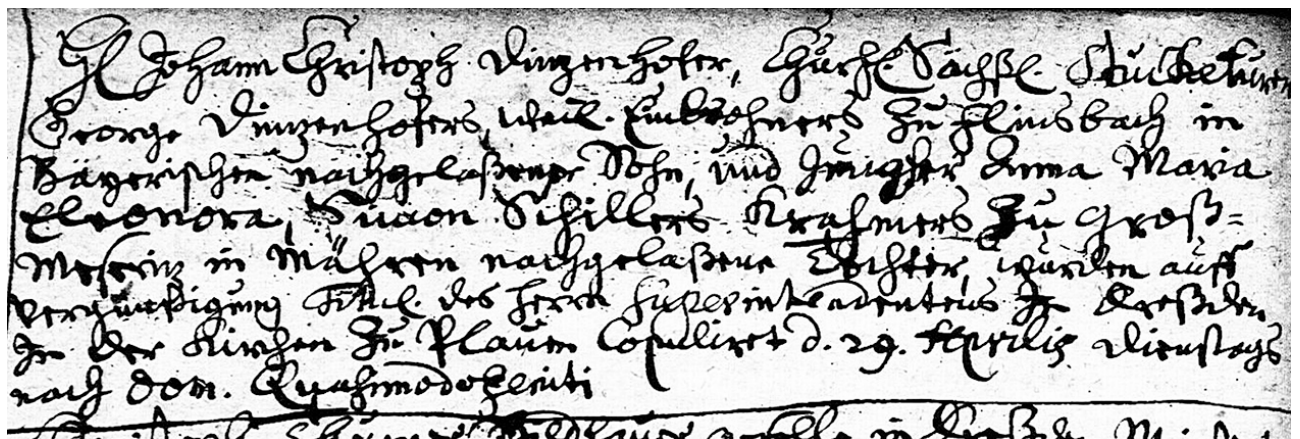 H. Johann Christoph Dinzenhofer, Churf. Sächß. Stuckaturer
George Dinzenhofers, weil. Einwohners zu Flinsbach in
Bäyerischen nachgelaßener Sohn, und Jungfer Anna Maria
Eleonora, Simon Schillers Krahmers zu Groß=
Meseritz in Mähren nachgelaßene Tochter, wurden auff
vergünstigung Titul. des Herrn Superintendentens in Dreßden
In der Kirchen zu Plauen Copuliret d. 29. Aprilis Dienstags
nach Dom. Quasimodogeniti
in Dreßden